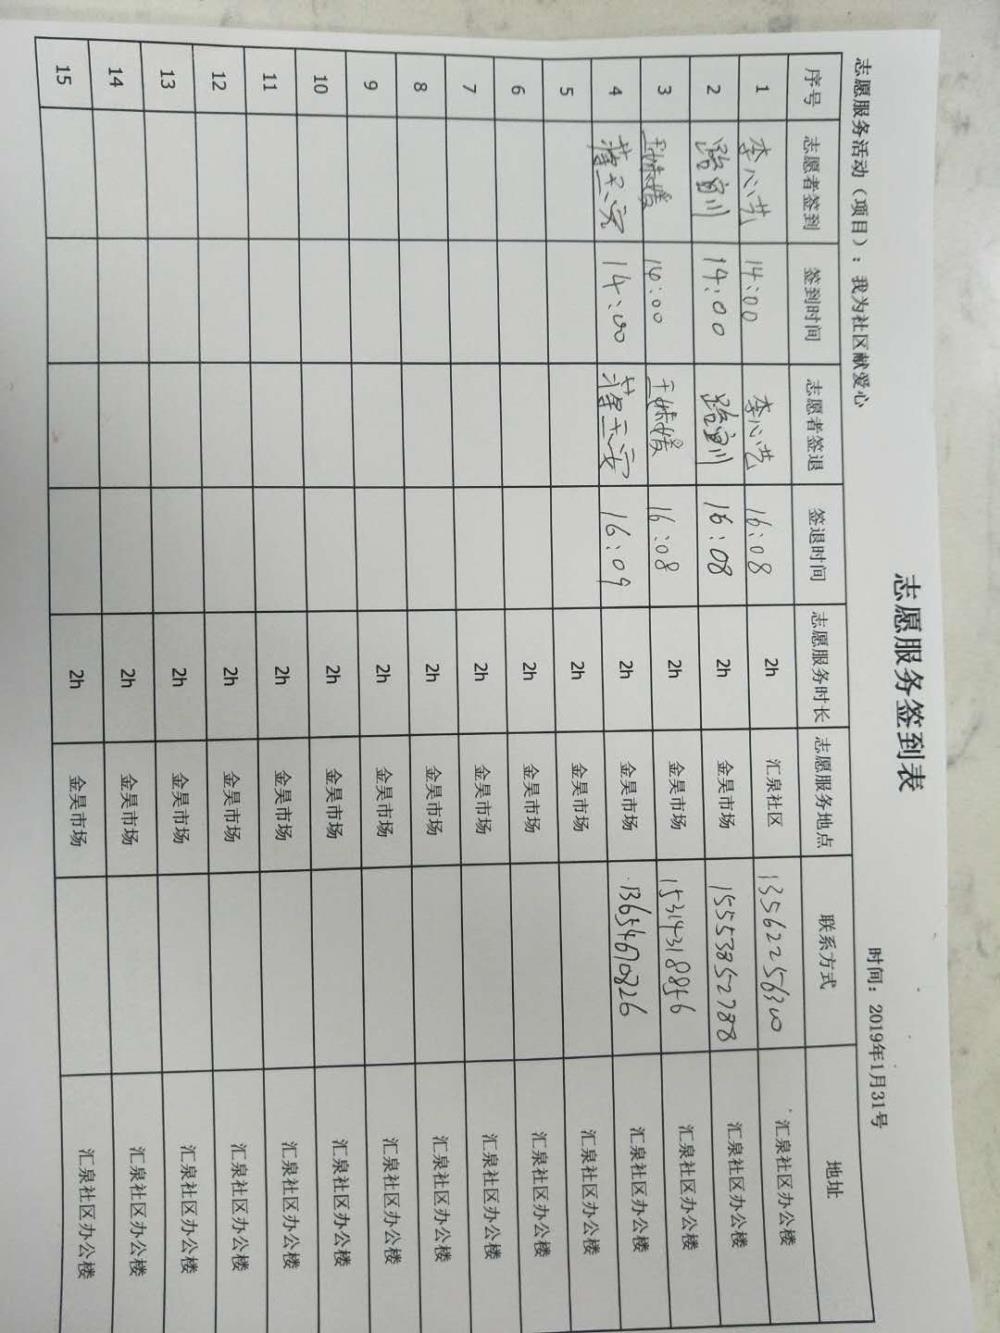 志愿服务签到表
志愿服务活动（项目）：我为社区献爱心 时间：2019年1月31号
序号 志愿者签到 签到时间 志愿者签退 签退时间 志愿服务时长 志愿服务地点 联系方式 地址
1 李心艺 14:00 李心艺 16:08 2h 汇泉社区 13562256300 汇泉社区办公楼
2 14:00 16:08 2h 金昊市场 15553852788 汇泉社区办公楼
3 14:00 16:08 2h 金昊市场 15314318856 汇泉社区办公楼
4 14:00 16:09 2h 金昊市场 13654670826 汇泉社区办公楼
5 2h 金昊市场 汇泉社区办公楼
6 2h 金昊市场 汇泉社区办公楼
7 2h 金昊市场 汇泉社区办公楼
8 2h 金昊市场 汇泉社区办公楼
9 2h 金昊市场 汇泉社区办公楼
10 2h 金昊市场 汇泉社区办公楼
11 2h 金昊市场 汇泉社区办公楼
12 2h 金昊市场 汇泉社区办公楼
13 2h 金昊市场 汇泉社区办公楼
14 2h 金昊市场 汇泉社区办公楼
15 2h 金昊市场 汇泉社区办公楼